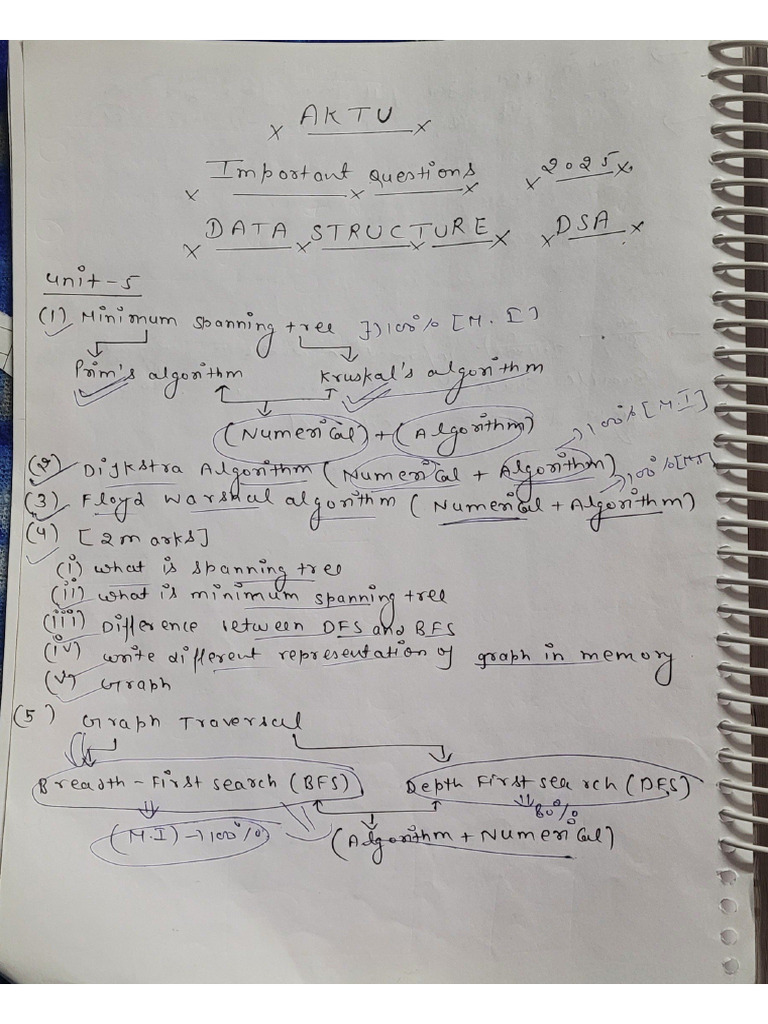 AKTU
Important Questions 2025
DATA STRUCTURE DSA
Unit-5
(1) Minimum spanning tree }→100% [M.I]
Prim's algorithm Kruskal's algorithm
(Numerical) + (Algorithm)
(2) Dijkstra Algorithm (Numerical + Algorithm) →100% [M.I]
(3) Floyd Warshal algorithm (Numerical + Algorithm) →100% [M.I]
(4) [2 marks]
(i) what is spanning tree
(ii) what is minimum spanning tree
(iii) Difference between DFS and BFS
(iv) write different representation of graph in memory
(v) Graph
(5) Graph Traversal
Breadth-First search (BFS) Depth First search (DFS)
80%
(M.I) →100% (Algorithm + Numerical)